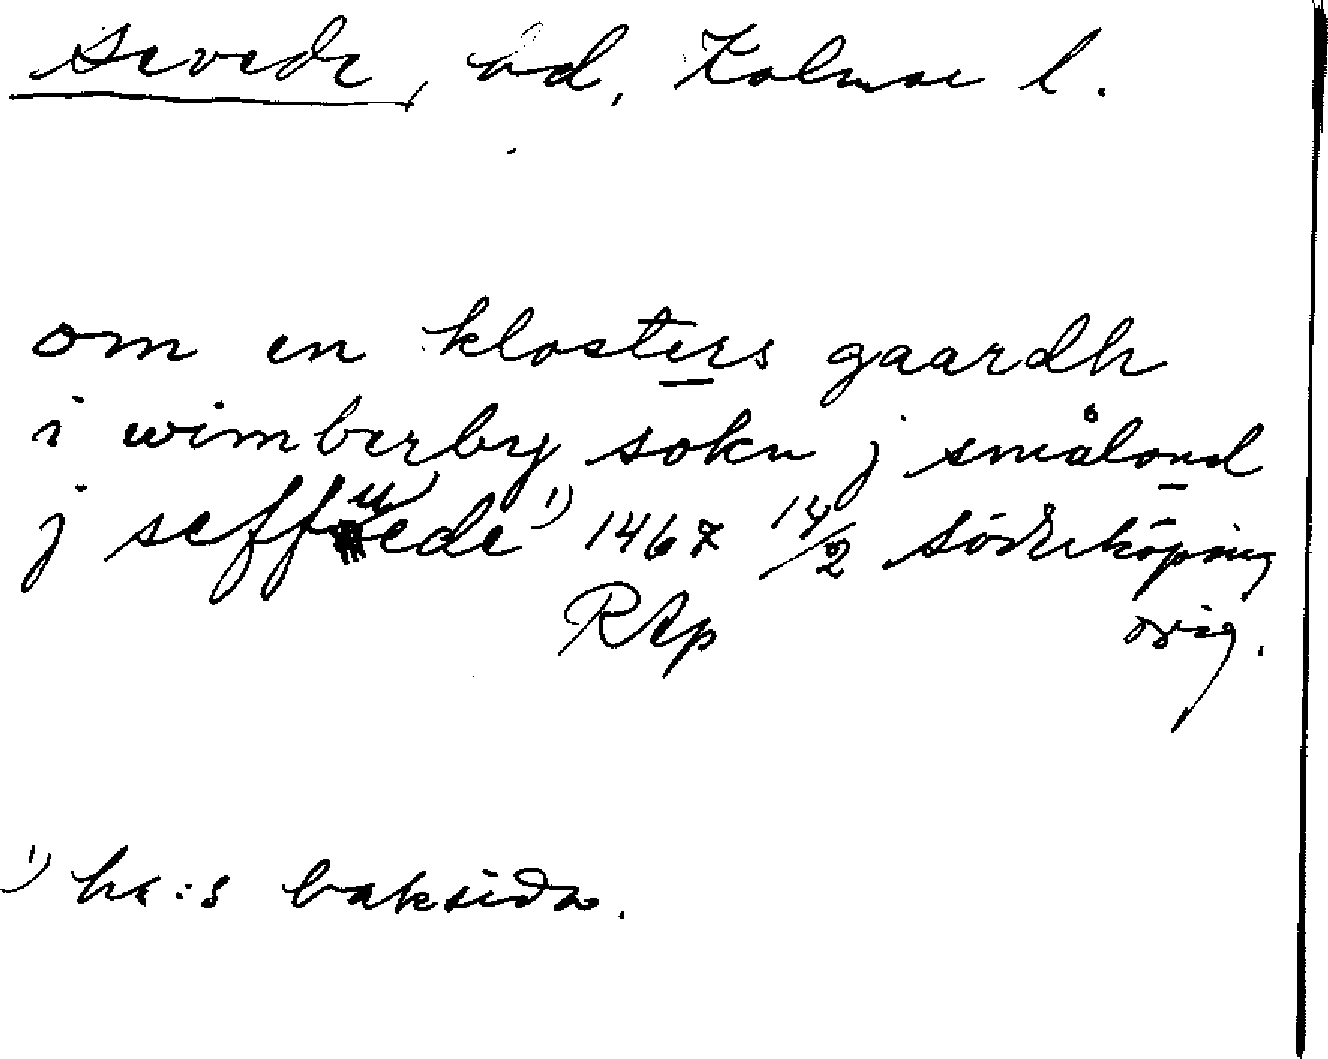 Sevede, hd, Kalmar l.
om en klosters gaardh
i wimberby sokn j småland
j seffuede 1) 1467 14/2 Söderköping
RAp orig.
1) hs:s baksida.